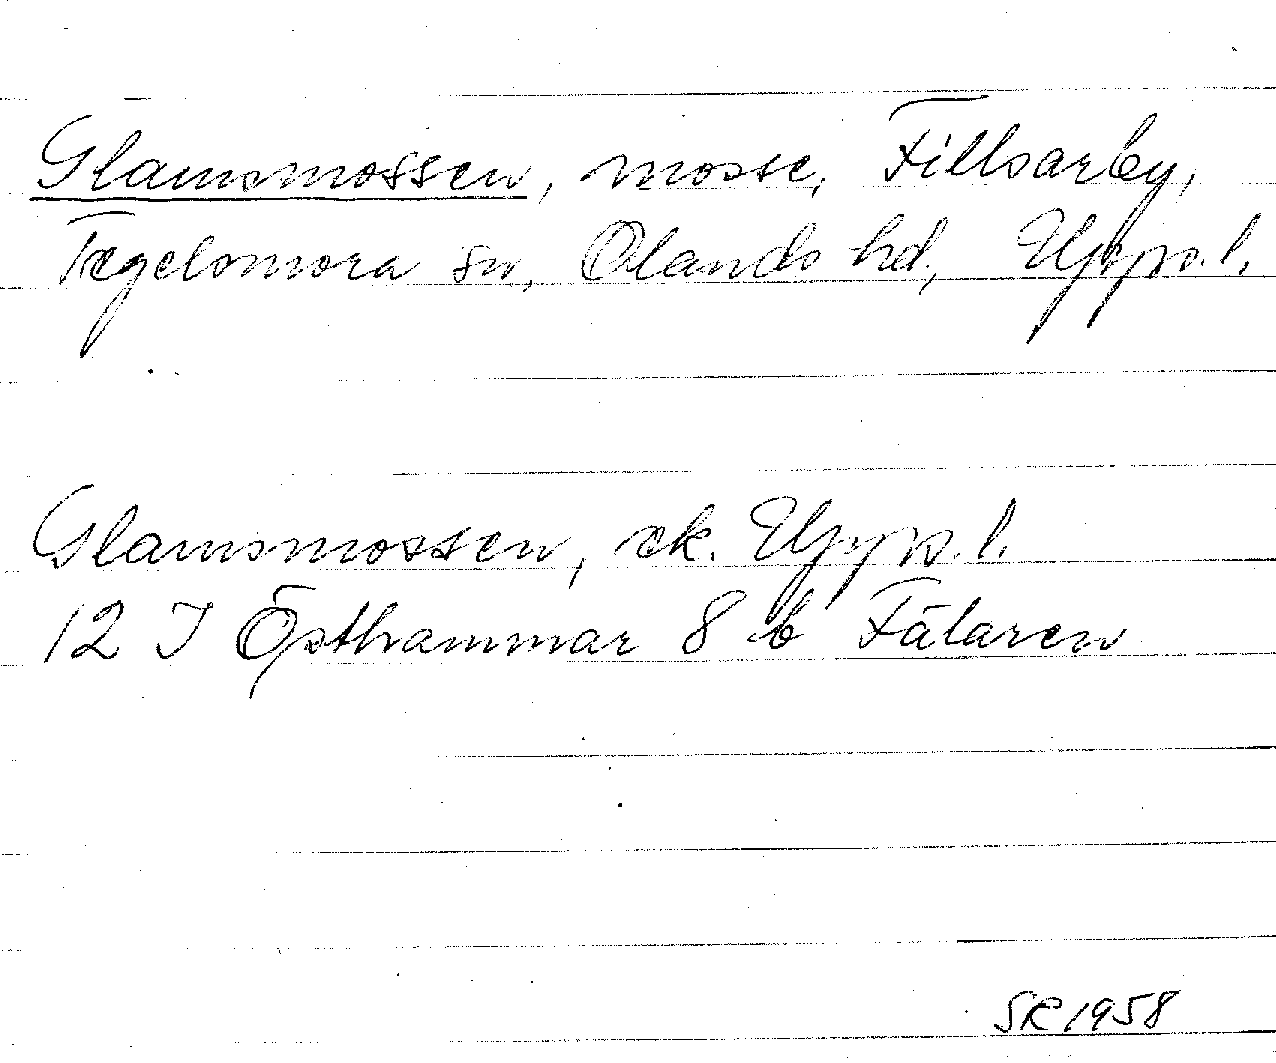 Glamsmossen, mosse, Fillsarby,
Tegelsmora sn, Olands hd, Uppl.
Glamsmossen, ek. Uppl.
12 I Östhammar 8 b Fälaren
SR 1958